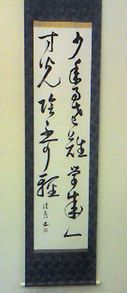 少年易老難学成一
寸光陰不可軽